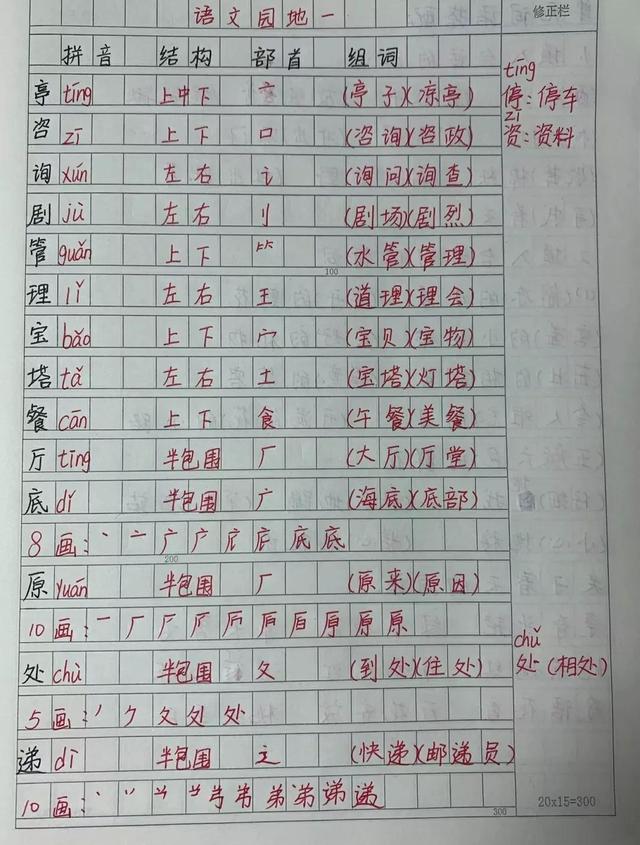 语文园地一
修正栏
拼音 结构 部首 组词
亭 tíng 上中下 亠 (亭子)(凉亭)
tíng
停:停车
咨 zī 上下 口 (咨询)(咨政)
zī
资:资料
询 xún 左右 讠 (询问)(询查)
剧 jù 左右 刂 (剧场)(剧烈)
管 guǎn 上下 ⺮ (水管)(管理)
100
理 lǐ 左右 王 (道理)(理会)
宝 bǎo 上下 宀 (宝贝)(宝物)
塔 tǎ 左右 土 (宝塔)(灯塔)
餐 cān 上下 食 (午餐)(美餐)
厅 tīng 半包围 厂 (大厅)(厅堂)
底 dǐ 半包围 广 (海底)(底部)
8画:底
200
原 yuán 半包围 厂 (原来)(原因)
10画:原
处 chù 半包围 夂 (到处)(住处)
chǔ
处(相处)
5画:处
递 dì 半包围 辶 (快递)(邮递员)
10画:递
300
20x15=300